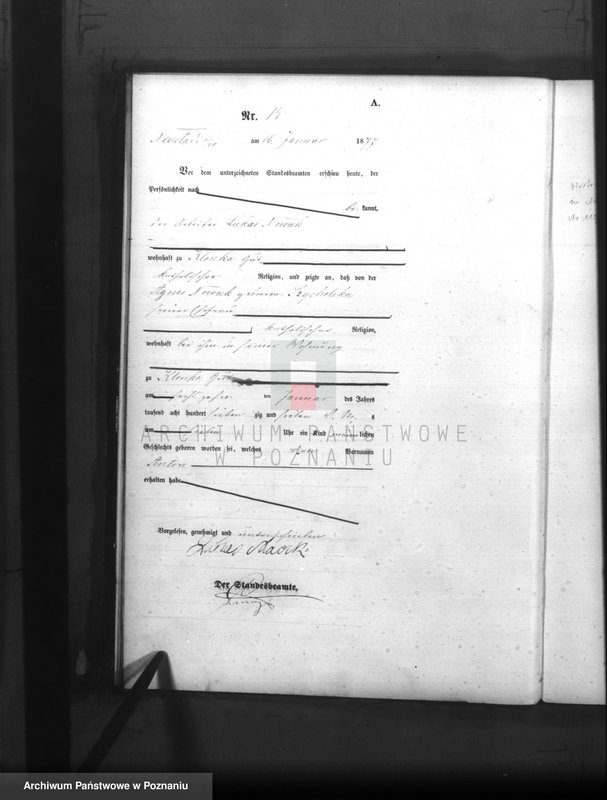 A.
Nr. 14
am 16 Januar 1877
Vor dem unterzeichneten Standesbeamten erschien heute, der
Persönlichkeit nach
be kannt,
der Arbeiter Lukas Nowak
wohnhaft zu Klonka Gut
katholischer Religion, und zeigte an, daß von der
Agnes Nowak geborene
seiner Ehefrau
katholischer Religion,
wohnhaft bei ihm in seiner Wohnung
zu Klonka Gut
am sechzehn ten Januar des Jahres
tausend acht hundert sieben zig und sieben V. M. s
um sieben Uhr ein Kind männlichen
Geschlechts geboren worden sei, welches den Vornamen
Anton
erhalten habe
Vorgelesen, genehmigt und unterschrieben
Der Standesbeamte,
ARCHIWUM PAŃSTWOWE
W POZNANIU
Archiwum Państwowe w Poznaniu